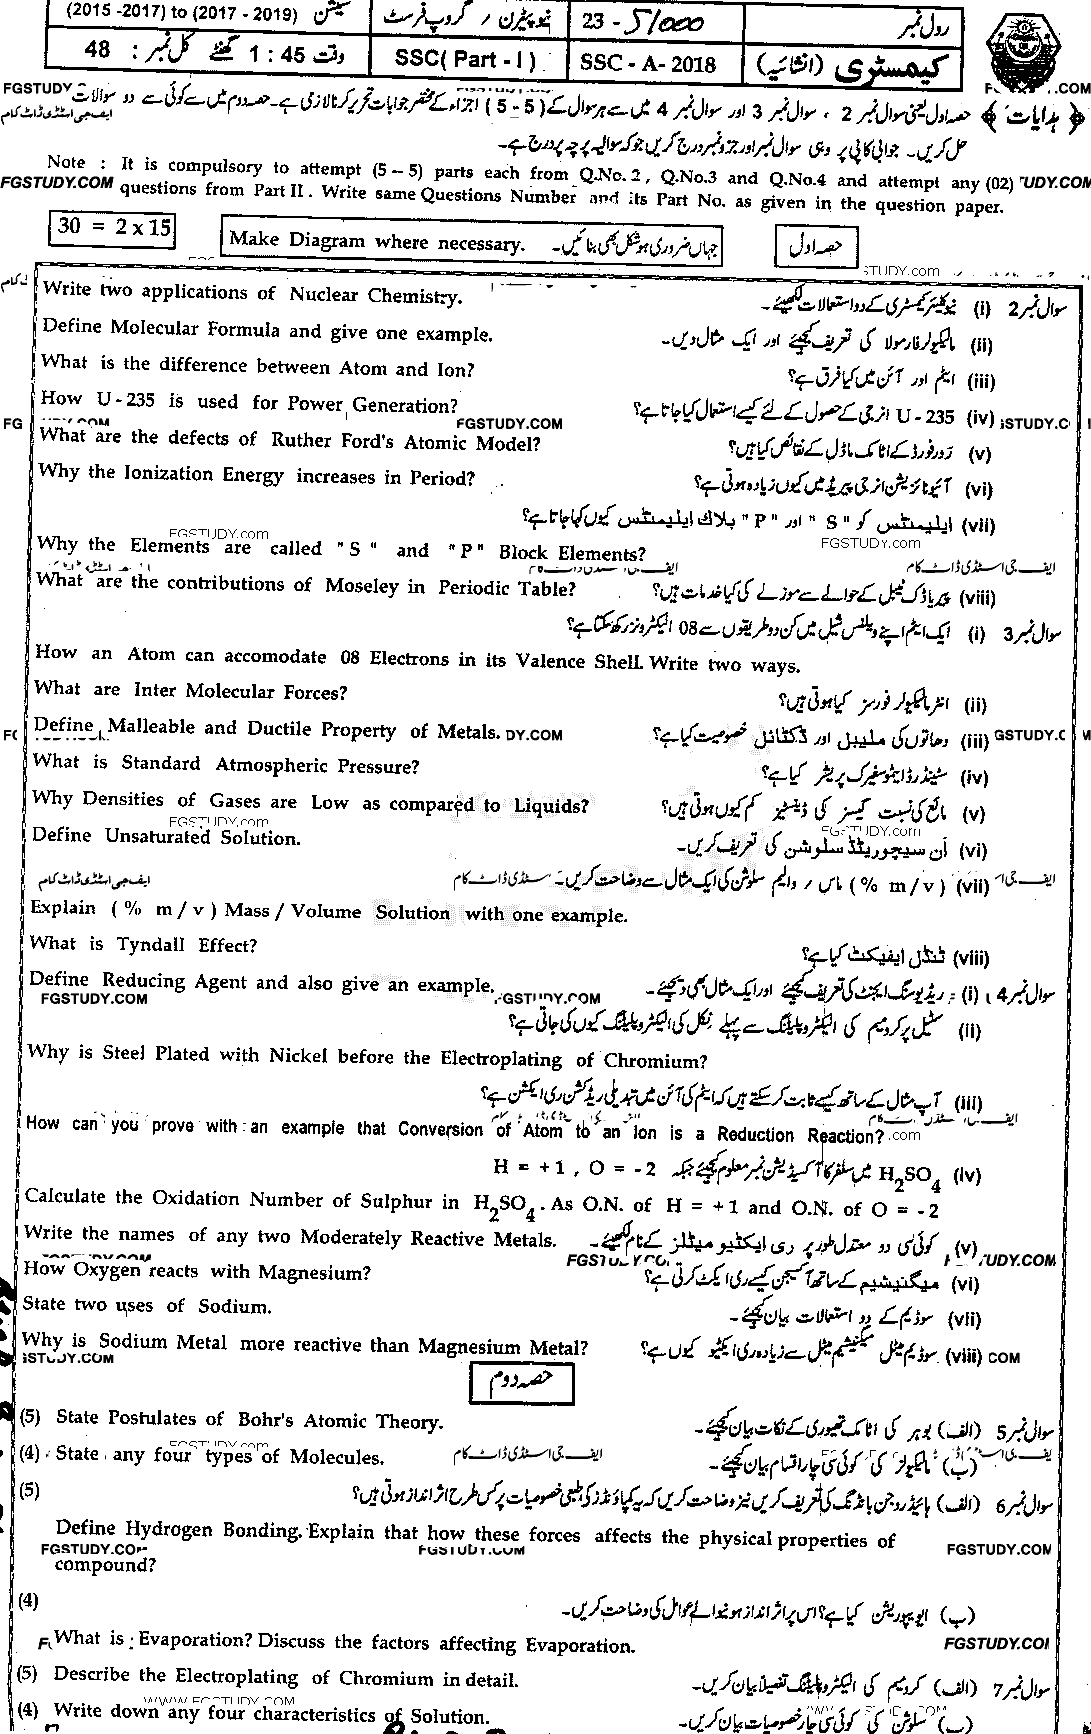 (2015 -2017) to (2017 - 2019) سیشن
نیو پیٹرن / گروپ فرسٹ
23 - 51000
رول نمبر
وقت 1 : 45 گھنٹے کل نمبر : 48
SSC( Part - I )
SSC - A- 2018
کیمسٹری (انشائیہ)
FGSTUDY
.COM
﴿ ہدایات ﴾ حصہ اول یعنی سوال نمبر 2 ، سوال نمبر 3 اور سوال نمبر 4 میں سے ہر سوال کے ( 5 - 5 ) اجزاء کے مختصر جوابات تحریر کرنا لازمی ہے۔ حصہ دوم میں سے کوئی سے دو سوالات
ایف جی اسٹڈی ڈاٹ کام
حل کریں۔ جوابی کاپی پر وہی سوال نمبر اور جزو نمبر درج کریں جو کہ سوالیہ پرچہ پر درج ہے۔
Note : It is compulsory to attempt (5 – 5) parts each from Q.No. 2 , Q.No.3 and Q.No.4 and attempt any (02)
FGSTUDY.COM
UDY.COM
questions from Part II . Write same Questions Number and its Part No. as given in the question paper.
30 = 2 x 15
Make Diagram where necessary. جہاں ضروری ہو شکل بھی بنائیں۔
حصہ اول
STUDY.com
Write two applications of Nuclear Chemistry.
سوال نمبر 2 (i) نیوکلیئر کیمسٹری کے دو استعمالات لکھئیے۔
Define Molecular Formula and give one example.
(ii) مالیکیولر فارمولا کی تعریف کیجئے اور ایک مثال دیں۔
What is the difference between Atom and Ion?
(iii) ایٹم اور آئن میں کیا فرق ہے؟
How U - 235 is used for Power Generation?
(iv) U - 235 انرجی کے حصول کے لئے کیسے استعمال کیا جاتا ہے؟
FGSTUDY.COM
What are the defects of Ruther Ford's Atomic Model?
(v) ردرفورڈ کے اٹامک ماڈل کے نقائص کیا ہیں؟
Why the Ionization Energy increases in Period?
(vi) آئیونائزیشن انرجی پیریڈ میں کیوں زیادہ ہوتی ہے؟
(vii) ایلیمنٹس کو "S" اور "P" بلاک ایلیمنٹس کیوں کہا جاتا ہے؟
FGSTUDY.com
FGSTUDY.com
Why the Elements are called "S" and "P" Block Elements?
ایف جی اسٹڈی ڈاٹ کام
What are the contributions of Moseley in Periodic Table?
(viii) پیریاڈک ٹیبل کے حوالے سے موزلے کی کیا خدمات ہیں؟
سوال نمبر 3 (i) ایک ایٹم اپنے ویلنس شیل میں کن دو طریقوں سے 08 الیکٹرونز رکھ سکتا ہے؟
How an Atom can accomodate 08 Electrons in its Valence Shell. Write two ways.
What are Inter Molecular Forces?
(ii) انٹر مالیکیولر فورسز کیا ہوتی ہیں؟
Define Malleable and Ductile Property of Metals.
(iii) دھاتوں کی ملیبل اور ڈکٹائل خصوصیت کیا ہے؟
What is Standard Atmospheric Pressure?
(iv) سٹینڈرڈ ایٹموسفیرک پریشر کیا ہے؟
Why Densities of Gases are Low as compared to Liquids?
(v) مائع کی نسبت گیسز کی ڈینسٹیز کم کیوں ہوتی ہیں؟
FGSTUDY.com
FGSTUDY.com
Define Unsaturated Solution.
(vi) اَن سیچوریٹڈ سلوشن کی تعریف کریں۔
(vii) ( % m / v ) ماس / والیم سلوشن کی ایک مثال سے وضاحت کریں۔
ایف جی اسٹڈی ڈاٹ کام
Explain ( % m / v ) Mass / Volume Solution with one example.
What is Tyndall Effect?
(viii) ٹنڈل ایفیکٹ کیا ہے؟
Define Reducing Agent and also give an example.
سوال نمبر 4 (i) ریڈیوسنگ ایجنٹ کی تعریف کیجئے اور ایک مثال بھی دیجئے۔
FGSTUDY.COM
FGSTUDY.COM
(ii) سٹیل پر کرومیم کی الیکٹروپلیٹنگ سے پہلے نکل کی الیکٹروپلیٹنگ کیوں کی جاتی ہے؟
Why is Steel Plated with Nickel before the Electroplating of Chromium?
(iii) آپ مثال کے ساتھ کیسے ثابت کر سکتے ہیں کہ ایٹم کی آئن میں تبدیلی ریڈکشن ری ایکشن ہے؟
How can you prove with an example that Conversion of Atom to an Ion is a Reduction Reaction?
(iv) H₂SO₄ میں سلفر کا آکسیڈیشن نمبر معلوم کیجئے جبکہ H = +1 , O = -2
Calculate the Oxidation Number of Sulphur in H₂SO₄. As O.N. of H = +1 and O.N. of O = -2
Write the names of any two Moderately Reactive Metals.
(v) کوئی سی دو معتدل طور پر ری ایکٹیو میٹلز کے نام لکھئیے۔
How Oxygen reacts with Magnesium?
(vi) میگنیشیم کے ساتھ آکسیجن کیسے ری ایکٹ کرتی ہے؟
State two uses of Sodium.
(vii) سوڈیم کے دو استعمالات بیان کیجئے۔
Why is Sodium Metal more reactive than Magnesium Metal?
(viii) سوڈیم میٹل میگنیشیم میٹل سے زیادہ ری ایکٹیو کیوں ہے؟
حصہ دوم
(5) State Postulates of Bohr's Atomic Theory.
سوال نمبر 5 (الف) بوہر کی اٹامک تھیوری کے نکات بیان کیجئے۔
(4) State any four types of Molecules.
ایف جی اسٹڈی ڈاٹ کام
(ب) مالیکیولز کی کوئی سی چار اقسام بیان کیجئے۔
(5)
سوال نمبر 6 (الف) ہائیڈروجن بانڈنگ کی تعریف کریں نیز وضاحت کریں کہ یہ کمپاؤنڈز کی طبعی خصوصیات پر کس طرح اثر انداز ہوتی ہیں؟
Define Hydrogen Bonding. Explain that how these forces affects the physical properties of
FGSTUDY.COM
FGSTUDY.COM
FGSTUDY.COM
compound?
(4)
(ب) ایوپیوریشن کیا ہے؟ اس پر اثر انداز ہونیوالے عوامل کی وضاحت کریں۔
What is Evaporation? Discuss the factors affecting Evaporation.
FGSTUDY.COM
(5) Describe the Electroplating of Chromium in detail.
سوال نمبر 7 (الف) کرومیم کی الیکٹروپلیٹنگ تفصیلاً بیان کریں۔
WWW.FGSTUDY.COM
(4) Write down any four characteristics of Solution.
(ب) سلوشن کی کوئی سی چار خصوصیات بیان کریں۔